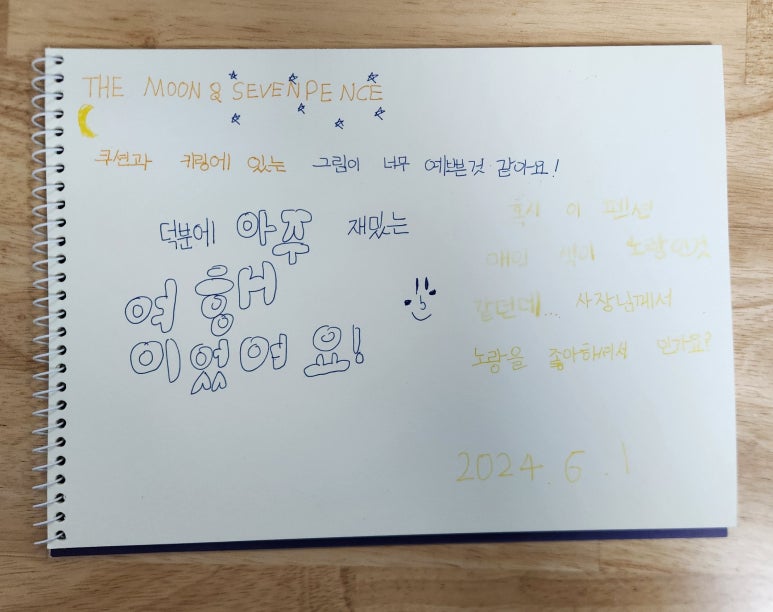 THE MOON & SEVENPENCE
쿠션과 키링에 있는 그림이 너무 예쁜것 같아요!
덕분에 아주 재밌는
여행
이었어요!
혹시 이 펜션
메인 색이 노랑인것
같던데... 사장님께서
노랑을 좋아하셔서 인가요?
2024.6.1